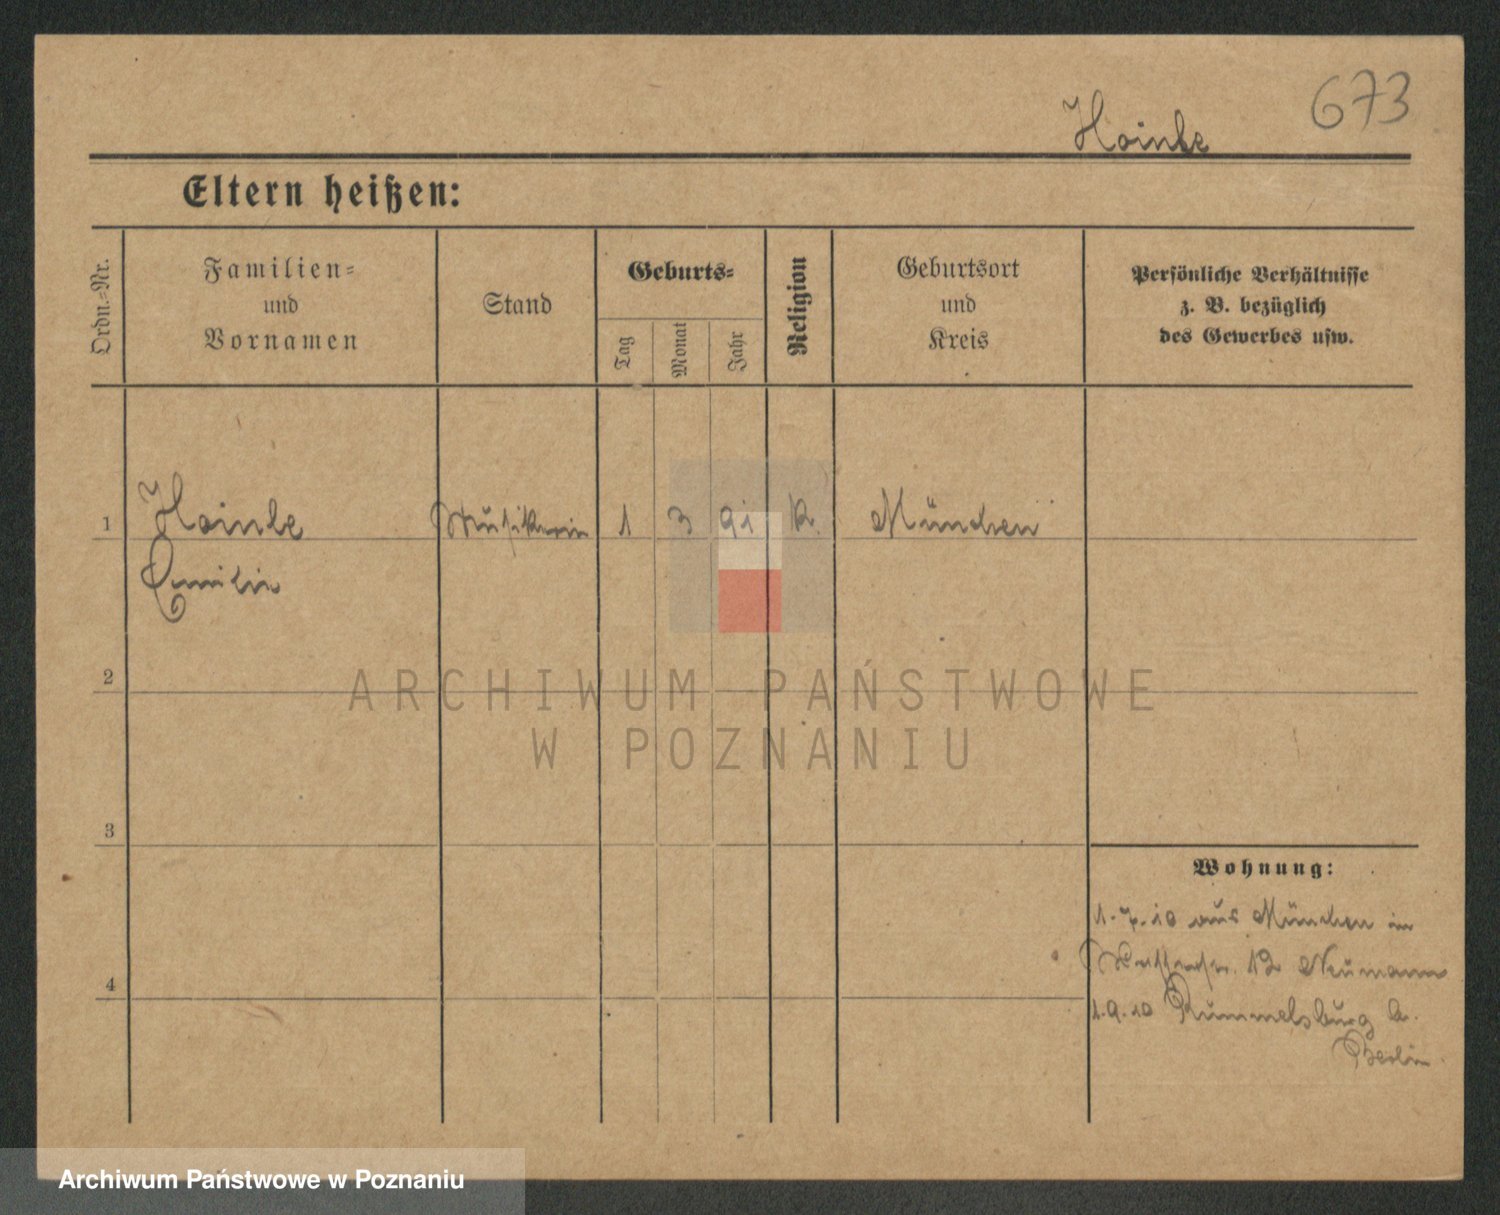 673
Hainle
Eltern heißen:
Ordn.=Nr.
Familien=
und
Vornamen
Stand
Geburts=
Tag
Monat
Jahr
Religion
Geburtsort
und
Kreis
Persönliche Verhältnisse
z. B. bezüglich
des Gewerbes usw.
1 Hainle Musikerin 1 3 91 k. München
Emilie
2
3
4
Wohnung:
1.7.10 aus München in
12 Neumann
1.9.10 Rummelsburg b.
Berlin
ARCHIWUM PAŃSTWOWE
W POZNANIU
Archiwum Państwowe w Poznaniu